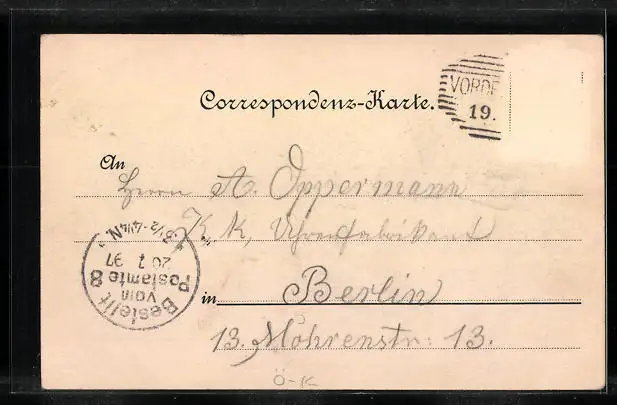 Correspondenz-Karte.
VORDE
19.
An
Herrn A. Oppermann
K. K. Uhrenfabrikant
in Berlin
13. Mohrenstr: 13.
Bestellt
vom
Postamte 8
26 7 97
3½-4¼N.
Ö-K